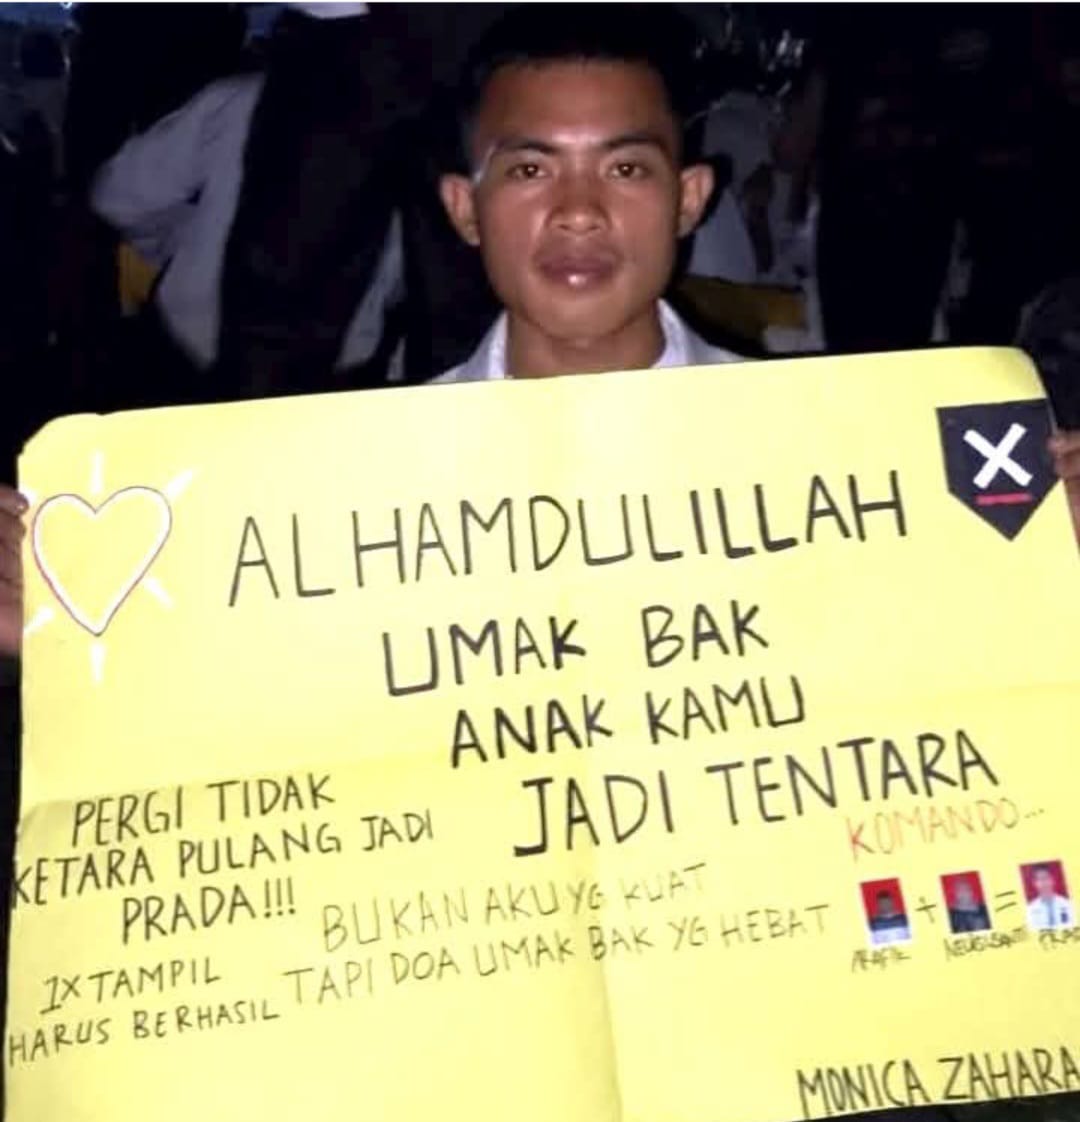 ALHAMDULILLAH
UMAK BAK
ANAK KAMU
JADI TENTARA
KOMANDO...
PERGI TIDAK
KETARA PULANG JADI
PRADA!!!
1X TAMPIL
HARUS BERHASIL
BUKAN AKU YG KUAT
TAPI DOA UMAK BAK YG HEBAT
+ =
MONICA ZAHARA